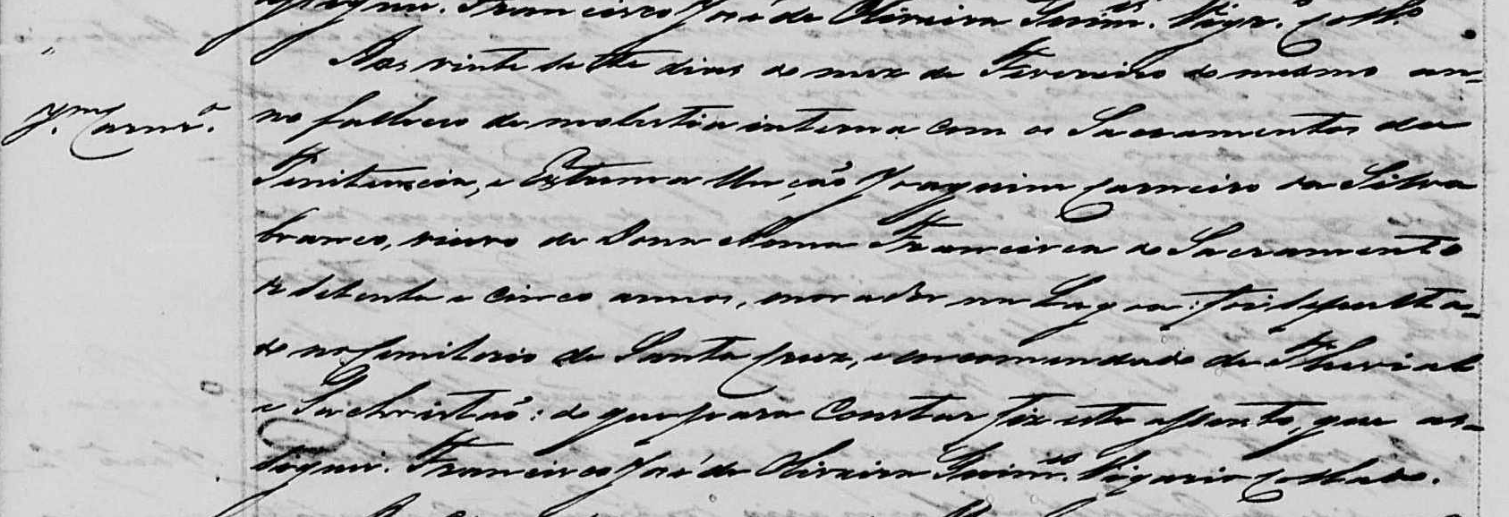 assignei. Francisco José de Oliveira Guim.es Vigr.o Coll.o
Aos vinte sette dias do mez de Fevereiro do mesmo an-
J.m Carnr.o
no falleceo de molestia interna com os Sacramentos da
Penitencia, e Extrema Unção Joaquim Carneiro da Silva
branco, viuvo de Dona Anna Francisca do Sacramento
de setenta e cinco annos, morador na Lagoa: foi sepulta-
do no Cemiterio de Santa Cruz, encomendado de Pluvial
e Sachristão: do que para constar fiz este assento, que as-
signei. Francisco José de Oliveira Guim.es Vigario Collado.